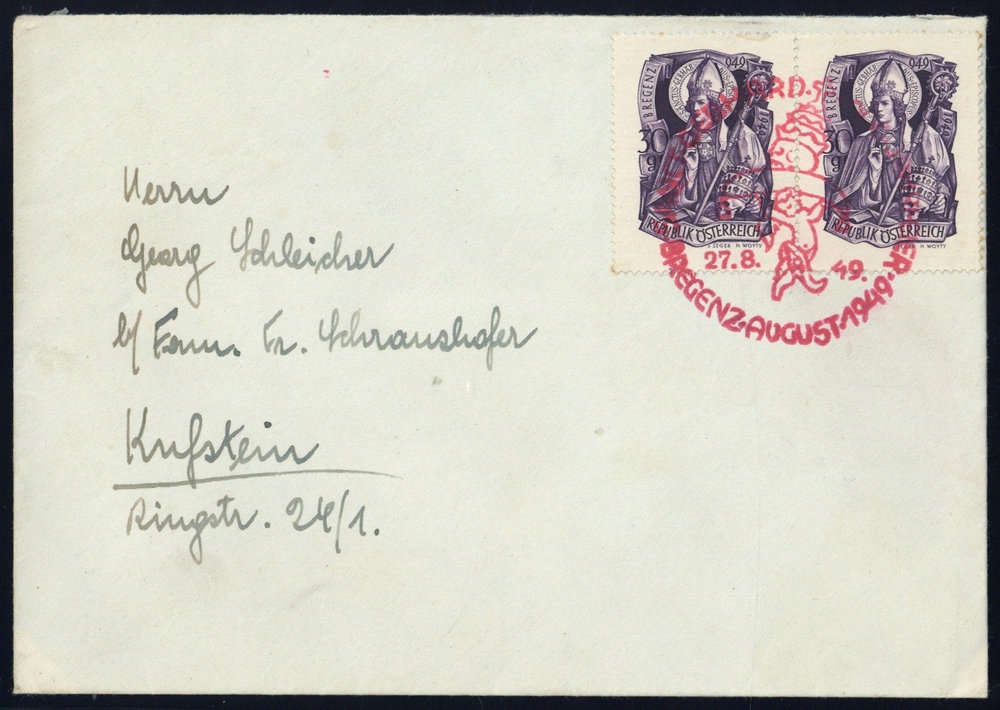 Herrn
Georg Schleicher
b/ Fam. Fr. Schraushofer
Kufstein
Ringstr. 24/1.
BREGENZ 949
SANCTUS GEBHARD EPISCOP
1949
30 g
REPUBLIK ÖSTERREICH
F. SEGER H. WOYTY
BREGENZ 949
1949
30 g
REPUBLIK ÖSTERREICH
F. SEGER H. WOYTY
27.8. 49.
BREGENZ·AUGUST·1949·